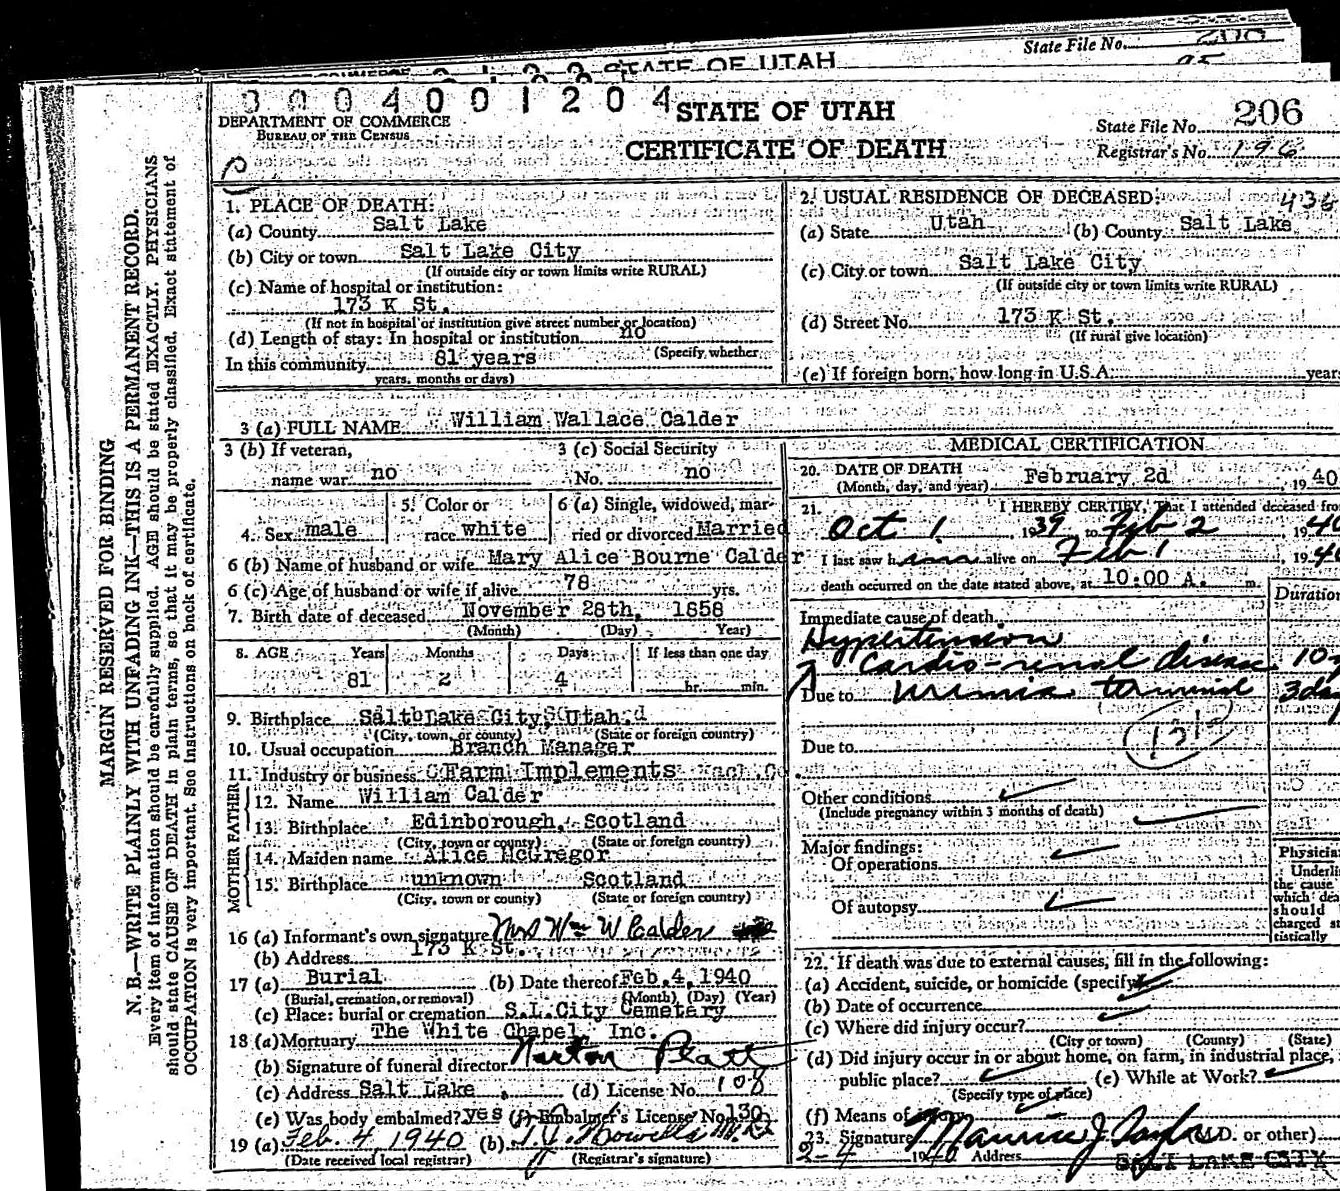 State File No. 206
STATE OF UTAH
0004001204
STATE OF UTAH
DEPARTMENT OF COMMERCE
BUREAU OF THE CENSUS
CERTIFICATE OF DEATH
State File No. 206
Registrar's No. 196
MARGIN RESERVED FOR BINDING
N. B.—WRITE PLAINLY WITH UNFADING INK—THIS IS A PERMANENT RECORD.
Every item of information should be carefully supplied. AGE should be stated EXACTLY. PHYSICIANS
should state CAUSE OF DEATH in plain terms, so that it may be properly classified. Exact statement of
OCCUPATION is very important. See instructions on back of certificate.
1. PLACE OF DEATH:
(a) County Salt Lake
(b) City or town Salt Lake City
(If outside city or town limits write RURAL)
(c) Name of hospital or institution:
173 K St.
(If not in hospital or institution give street number or location)
(d) Length of stay: In hospital or institution no
(Specify whether
In this community 81 years
years, months or days)
2. USUAL RESIDENCE OF DECEASED: 436
(a) State Utah (b) County Salt Lake
(c) City or town Salt Lake City
(If outside city or town limits write RURAL)
(d) Street No. 173 K St.
(If rural give location)
(e) If foreign born, how long in U.S.A. years
3 (a) FULL NAME William Wallace Calder
3 (b) If veteran, 3 (c) Social Security
name war no No. no
4. Sex male 5. Color or race white 6 (a) Single, widowed, married or divorced Married
6 (b) Name of husband or wife Mary Alice Bourne Calder
6 (c) Age of husband or wife if alive 78 yrs.
7. Birth date of deceased November 28th, 1858
(Month) (Day) (Year)
8. AGE Years Months Days If less than one day
81 2 4 hr. min.
9. Birthplace Salt Lake City, Utah
(City, town, or county) (State or foreign country)
10. Usual occupation Branch Manager
11. Industry or business Farm Implements
FATHER
12. Name William Calder
13. Birthplace Edinborough, Scotland
(City, town or county) (State or foreign country)
MOTHER
14. Maiden name Alice McGregor
15. Birthplace unknown Scotland
(City, town or county) (State or foreign country)
16 (a) Informant's own signature Mrs Wm W Calder
(b) Address 173 K St.
17 (a) Burial (b) Date thereof Feb. 4, 1940
(Burial, cremation, or removal) (Month) (Day) (Year)
(c) Place: burial or cremation S.L.City Cemetery
18 (a) Mortuary The White Chapel, Inc.
(b) Signature of funeral director
(c) Address Salt Lake, (d) License No. 108
(e) Was body embalmed? yes (f) Embalmer's License No. 130
19 (a) Feb. 4, 1940 (b)
(Date received local registrar) (Registrar's signature)
MEDICAL CERTIFICATION
20. DATE OF DEATH
(Month, day, and year) February 2d, 1940
21. I HEREBY CERTIFY, That I attended deceased from
Oct 1, 1939 to Feb 2, 1940
I last saw him alive on Feb 1 1940
death occurred on the date stated above, at 10:00 A. m.
Duration
Immediate cause of death
Hypertension
Cardio-renal disease 10
Due to uremia terminal 3 da
Due to
Other conditions
(Include pregnancy within 3 months of death)
Major findings:
Of operations
Of autopsy
Physician
Underline
the cause
which dea
should
charged st
tistically
22. If death was due to external causes, fill in the following:
(a) Accident, suicide, or homicide (specify)
(b) Date of occurrence
(c) Where did injury occur?
(City or town) (County) (State)
(d) Did injury occur in or about home, on farm, in industrial place,
public place? (e) While at Work?
(Specify type of place)
(f) Means of injury
23. Signature Maurice J Taylor (M.D. or other)
2-4 1940 Address SALT LAKE CITY